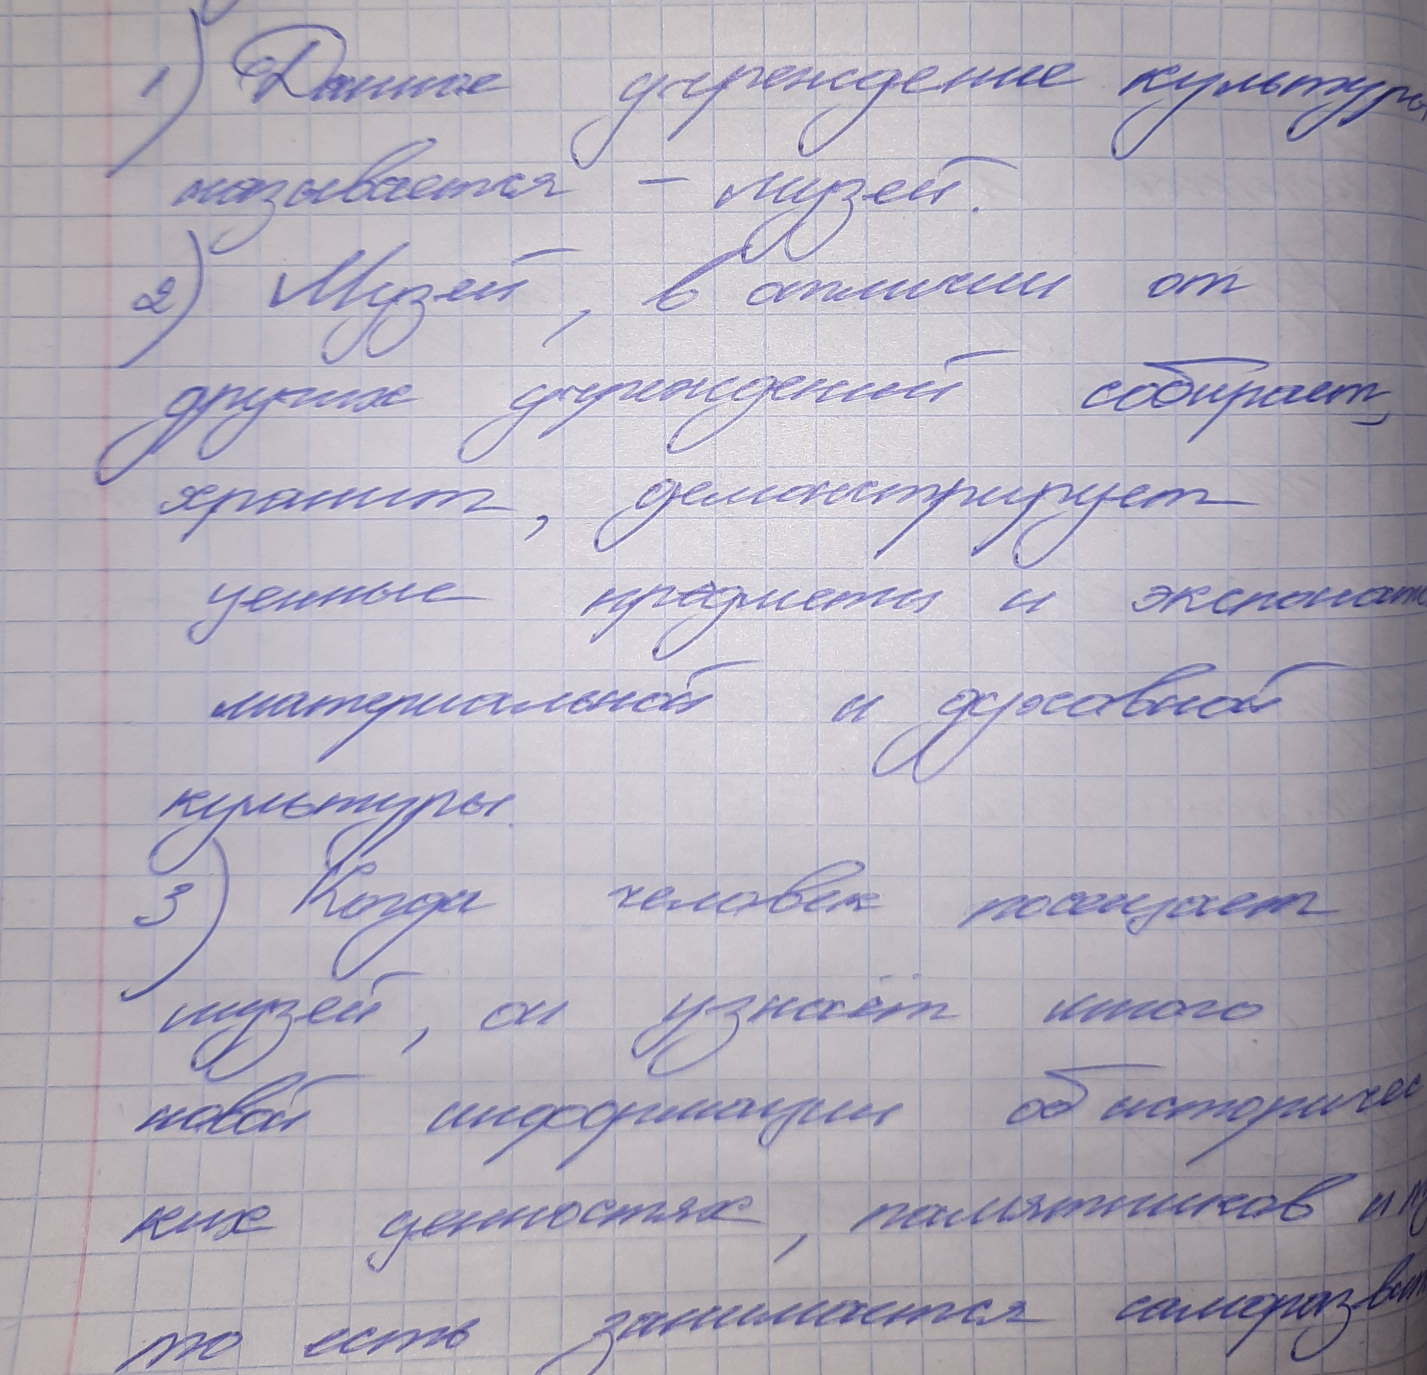 1) Данное учреждение культуры
называется – музей.
2) Музей, в отличии от
других учреждений собирает,
хранит, демонстрирует
ценные предметы и экспонаты
материальной и духовной
культуры.
3) Когда человек посещает
музей, он узнаёт много
новой информации об историчес
ких ценностях, памятников и
то есть занимается саморазвит